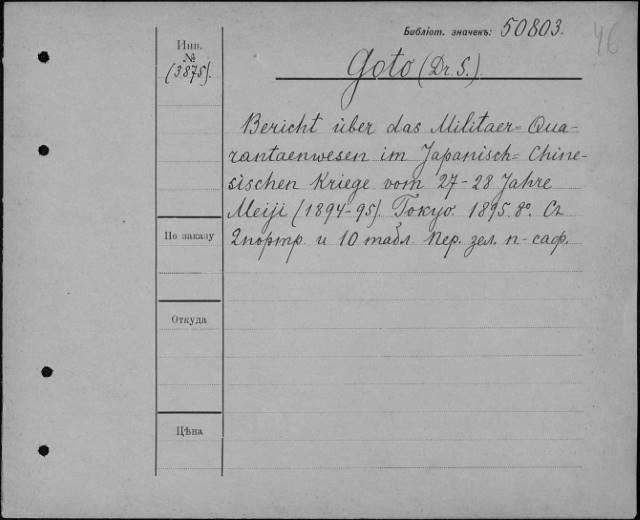 Библіот. значекъ: 50803.
46
Инв.
№
(3875).
Goto (Dr. S.).
Bericht über das Militaer=Qua-
rantaenwesen im Japanisch=Chine-
sischen Kriege vom 27-28 Jahre
Meiji (1894-95). Tokyo. 1895. 8°. Съ
2 портр. и 10 табл. Пер. зел. п-саф.
По заказу
Откуда
Цѣна